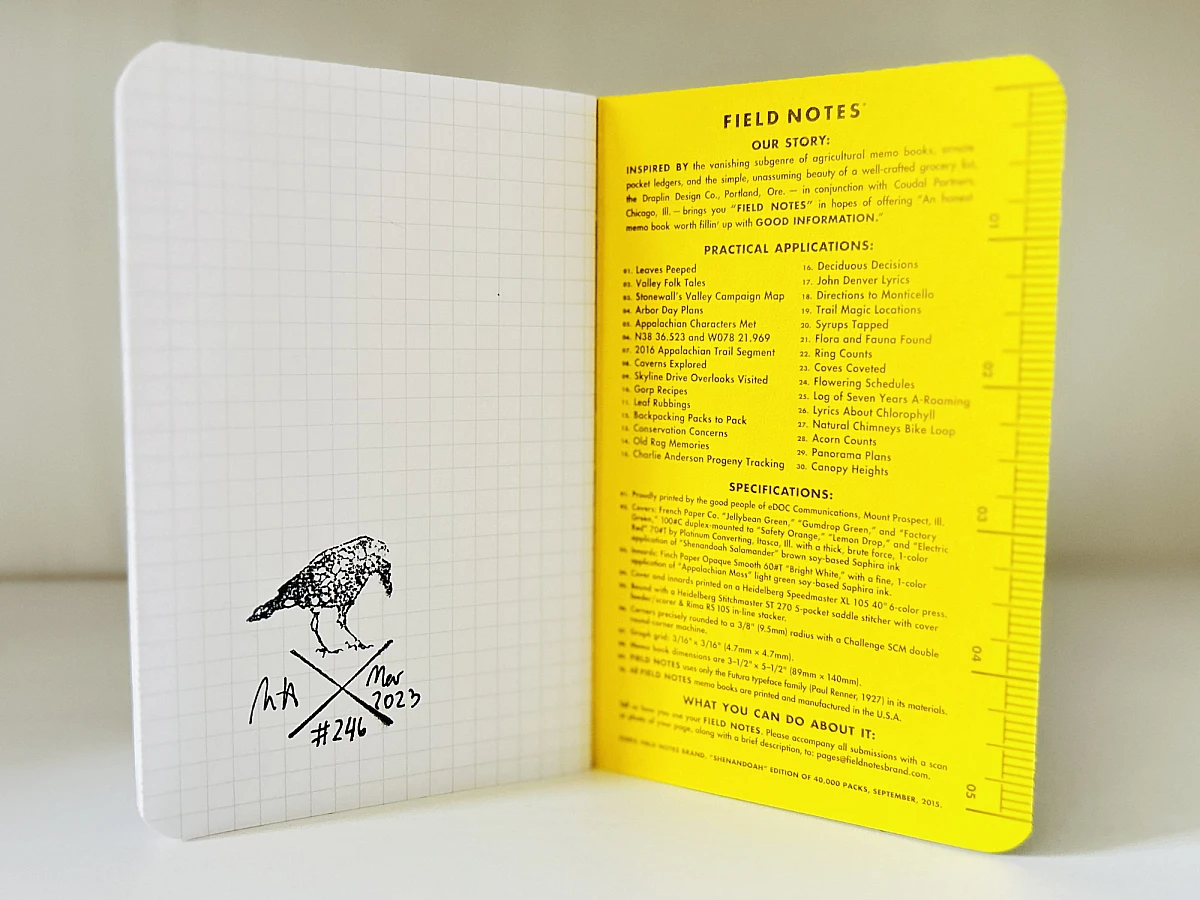 MA
Mar
2023
#246
FIELD NOTES
OUR STORY:
INSPIRED BY the vanishing subgenre of agricultural memo books, ornate
pocket ledgers, and the simple, unassuming beauty of a well-crafted grocery list,
the Draplin Design Co., Portland, Ore. — in conjunction with Coudal Partners,
Chicago, Ill. — brings you "FIELD NOTES" in hopes of offering "An honest
memo book worth fillin' up with GOOD INFORMATION."
PRACTICAL APPLICATIONS:
01. Leaves Peeped
02. Valley Folk Tales
03. Stonewall's Valley Campaign Map
04. Arbor Day Plans
05. Appalachian Characters Met
06. N38 36.523 and W078 21.969
07. 2016 Appalachian Trail Segment
08. Caverns Explored
09. Skyline Drive Overlooks Visited
10. Gorp Recipes
11. Leaf Rubbings
12. Backpacking Packs to Pack
13. Conservation Concerns
14. Old Rag Memories
15. Charlie Anderson Progeny Tracking
16. Deciduous Decisions
17. John Denver Lyrics
18. Directions to Monticello
19. Trail Magic Locations
20. Syrups Tapped
21. Flora and Fauna Found
22. Ring Counts
23. Coves Coveted
24. Flowering Schedules
25. Log of Seven Years A-Roaming
26. Lyrics About Chlorophyll
27. Natural Chimneys Bike Loop
28. Acorn Counts
29. Panorama Plans
30. Canopy Heights
SPECIFICATIONS:
01. Proudly printed by the good people of eDOC Communications, Mount Prospect, Ill.
02. Covers: French Paper Co. "Jellybean Green," "Gumdrop Green," and "Factory
Green," 100#C duplex-mounted to "Safety Orange," "Lemon Drop," and "Electric
Red" 70#T by Platinum Converting, Itasca, Ill. with a thick, brute force, 1-color
application of "Shenandoah Salamander" brown soy-based Saphira ink
03. Innards: Finch Paper Opaque Smooth 60#T "Bright White," with a fine, 1-color
application of "Appalachian Moss" light green soy-based Saphira ink.
04. Cover and innards printed on a Heidelberg Speedmaster XL 105 40" 6-color press.
05. Bound with a Heidelberg Stitchmaster ST 270 5-pocket saddle stitcher with cover
feeder/scorer & Rima RS 10S in-line stacker.
06. Corners precisely rounded to a 3/8" (9.5mm) radius with a Challenge SCM double
round-corner machine.
07. Graph grid: 3/16" x 3/16" (4.7mm x 4.7mm).
08. Memo book dimensions are 3-1/2" x 5-1/2" (89mm x 140mm).
09. FIELD NOTES uses only the Futura typeface family (Paul Renner, 1927) in its materials.
10. All FIELD NOTES memo books are printed and manufactured in the U.S.A.
WHAT YOU CAN DO ABOUT IT:
Tell us how you use your FIELD NOTES. Please accompany all submissions with a scan
or photo of your page, along with a brief description, to: pages@fieldnotesbrand.com.
FIELD NOTES BRAND, "SHENANDOAH" EDITION OF 40,000 PACKS, SEPTEMBER, 2015.
01
02
03
04
05